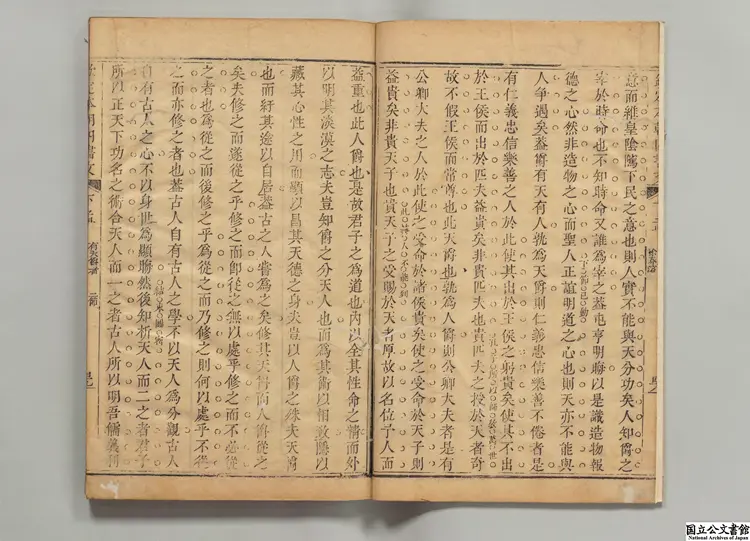 意而維皇陰隲下民之意也則人實不能與天分功矣人知爵之
宰於時命也不知時命又誰為宰之蓋屯亨明晦以是識造物報
德之心然非造物之心而聖人正誼明道之心也則天亦不能與
人爭過矣蓋爵有天有人孰為天爵則仁義忠信樂善不倦者是
有仁義忠信樂善之人於此使其出於王侯之躬貴矣使其不出
於王侯而出於匹夫益貴矣非貴匹夫也貴匹夫之授於天者奇
故不假王侯而常尊也此天爵也孰為人爵則公卿大夫者是有
公卿大夫之人於此使之受命於諸侯貴矣使之受命於天子則
益貴矣非貴天子也貴天子之受賜於天者原故以名位予人而
益重也此人爵也是故君子之為道也內以全其性命之情而外
以明其淡漠之志夫豈知爵之分天人也而為其術以相勸隱以
藏其心性之用而顯以昌其天德之身夫豈以人爵之殊夫天爵
也而紆其途以自居蓋古之人嘗為之矣修其天爵而人爵從之
矣夫修之而遂從之乎修之而即從之無以處乎修之而不必從
之者也為從之而後修之乎為從之而乃修之則何以處乎不從
之而亦修之者也蓋古人自有古人之學不以天人為分觀古人
自有古人之心不以身世為顯晦然後知析天人而二之者君子
所以正天下功名之術合天人而一之者古人所以明吾儒義利
有天爵者
二節
國立公文書館
National Archives of Japan